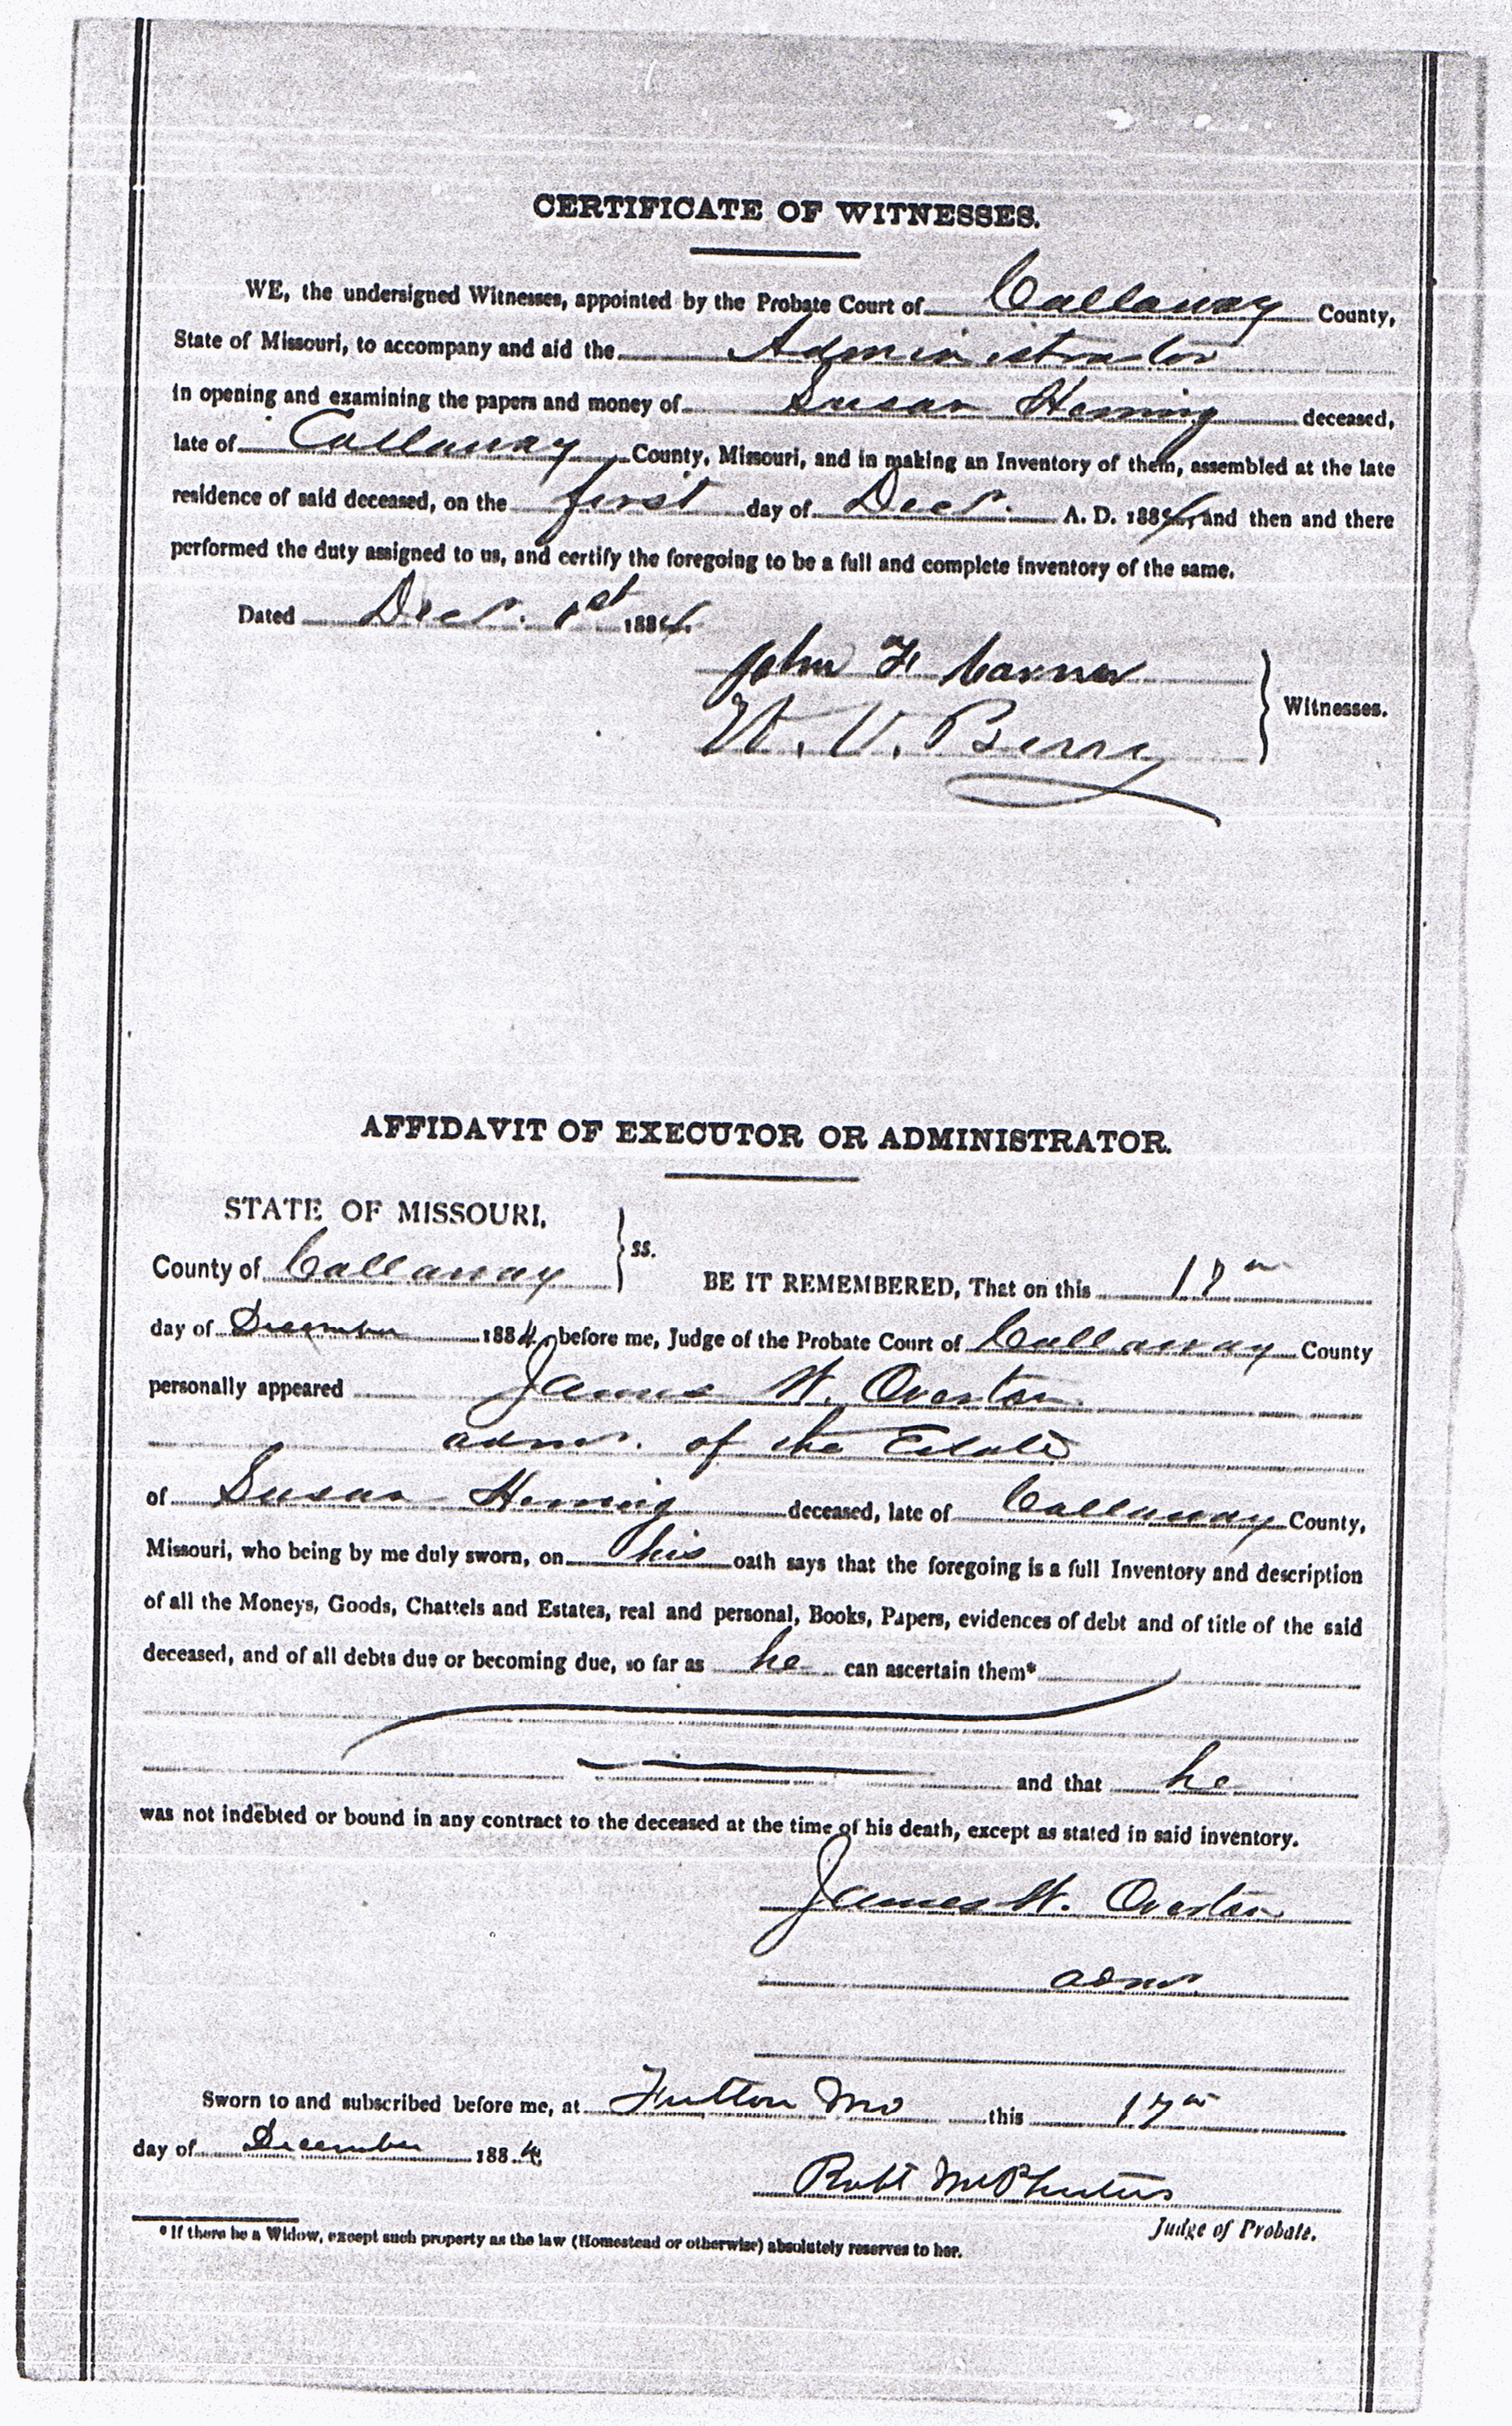 CERTIFICATE OF WITNESSES.
WE, the undersigned Witnesses, appointed by the Probate Court of Callaway County,
State of Missouri, to accompany and aid the Administrator
in opening and examining the papers and money of Susan Herring deceased,
late of Callaway County, Missouri, and in making an Inventory of them, assembled at the late
residence of said deceased, on the first day of Decr. A. D. 1884, and then and there
performed the duty assigned to us, and certify the foregoing to be a full and complete inventory of the same.
Dated Decr. 1st 1884.
John F.
W. V. Berry
Witnesses.
AFFIDAVIT OF EXECUTOR OR ADMINISTRATOR.
STATE OF MISSOURI,
County of Callaway
ss.
BE IT REMEMBERED, That on this 17th
day of December 1884, before me, Judge of the Probate Court of Callaway County
personally appeared James W. Overton
admr. of the Estate
of Susan Herring deceased, late of Callaway County,
Missouri, who being by me duly sworn, on his oath says that the foregoing is a full Inventory and description
of all the Moneys, Goods, Chattels and Estates, real and personal, Books, Papers, evidences of debt and of title of the said
deceased, and of all debts due or becoming due, so far as he can ascertain them*
and that he
was not indebted or bound in any contract to the deceased at the time of his death, except as stated in said inventory.
James W. Overton
admr.
Sworn to and subscribed before me, at Fulton Mo this 17th
day of December 1884.
Robt McPheeters
Judge of Probate.
*If there be a Widow, except such property as the law (Homestead or otherwise) absolutely reserves to her.